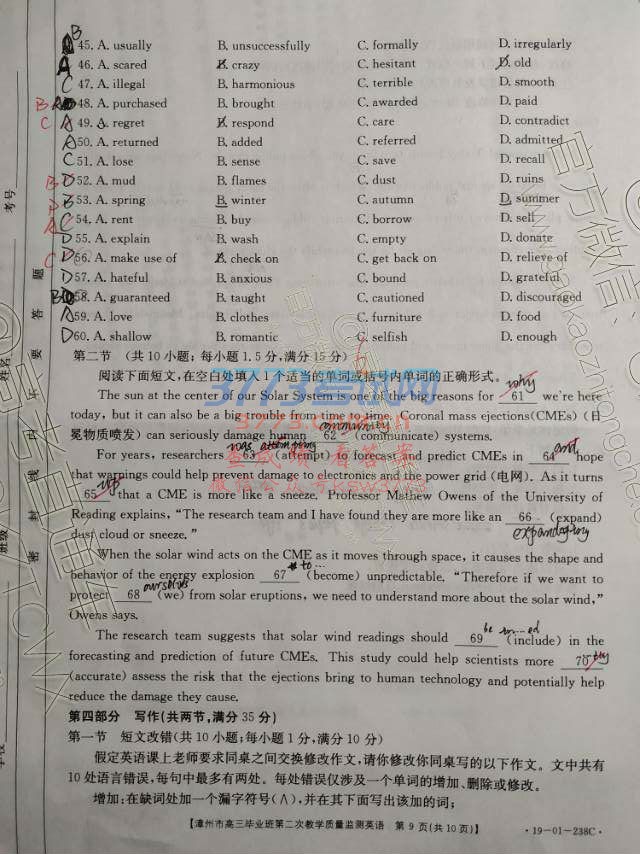 B
45. A. usually B. unsuccessfully C. formally D. irregularly
A 46. A. scared B. crazy C. hesitant D. old
C 47. A. illegal B. harmonious C. terrible D. smooth
B 48. A. purchased B. brought C. awarded D. paid
C A 49. A. regret B. respond C. care D. contradict
A 50. A. returned B. added C. referred D. admitted
C 51. A. lose B. sense C. save D. recall
B D 52. A. mud B. flames C. dust D. ruins
53. A. spring B. winter C. autumn D. summer
A C 54. A. rent B. buy C. borrow D. sell
D 55. A. explain B. wash C. empty D. donate
C D 56. A. make use of B. check on C. get back on D. relieve of
D 57. A. hateful B. anxious C. bound D. grateful
B 58. A. guaranteed B. taught C. cautioned D. discouraged
A 59. A. love B. clothes C. furniture D. food
D 60. A. shallow B. romantic C. selfish D. enough
第二节 (共10小题;每小题1.5分,满分15分)
阅读下面短文,在空白处填入1个适当的单词或括号内单词的正确形式。
why
The sun at the centre of our Solar System is one of the key reasons for 61 we're here
today, but it can also be a big trouble from time to time. Coronal mass ejections(CMEs) (日
冕物质喷发) can seriously damage human 62 (communicate) systems.
was attempting and
For years, researchers 63 (attempt) to forecast and predict CMEs in 64 hope
that warnings could help prevent damage to electronics and the power grid (电网). As it turns
65 that a CME is more like a sneeze. Professor Mathew Owens of the University of
Reading explains, "The research team and I have found they are more like an 66 (expand)
dust cloud or sneeze."
When the solar wind acts on the CME as it moves through space, it causes the shape and
to
behavior of the energy explosion 67 (become) unpredictable. "Therefore if we want to
ourselves
protect 68 (we) from solar eruptions, we need to understand more about the solar wind,"
Owens says.
be
The research team suggests that solar wind readings should 69 (include) in the
forecasting and prediction of future CMEs. This study could help scientists more 70
(accurate) assess the risk that the ejections bring to human technology and potentially help
reduce the damage they cause.
第四部分 写作(共两节,满分35分)
第一节 短文改错(共10小题;每小题1分,满分10分)
假定英语课上老师要求同桌之间交换修改作文,请你修改你同桌写的以下作文。文中共有
10处语言错误,每句中最多有两处。每处错误仅涉及一个单词的增加、删除或修改。
增加:在缺词处加一个漏字符号(∧),并在其下面写出该加的词;
【漳州市高三毕业班第二次教学质量监测英语 第9页(共10页)】 ·19-01-238C·
考号
姓名
班级
密 封 线 内 不 要 答 题
3773考试网
3773.com.cn
查成绩 看答案